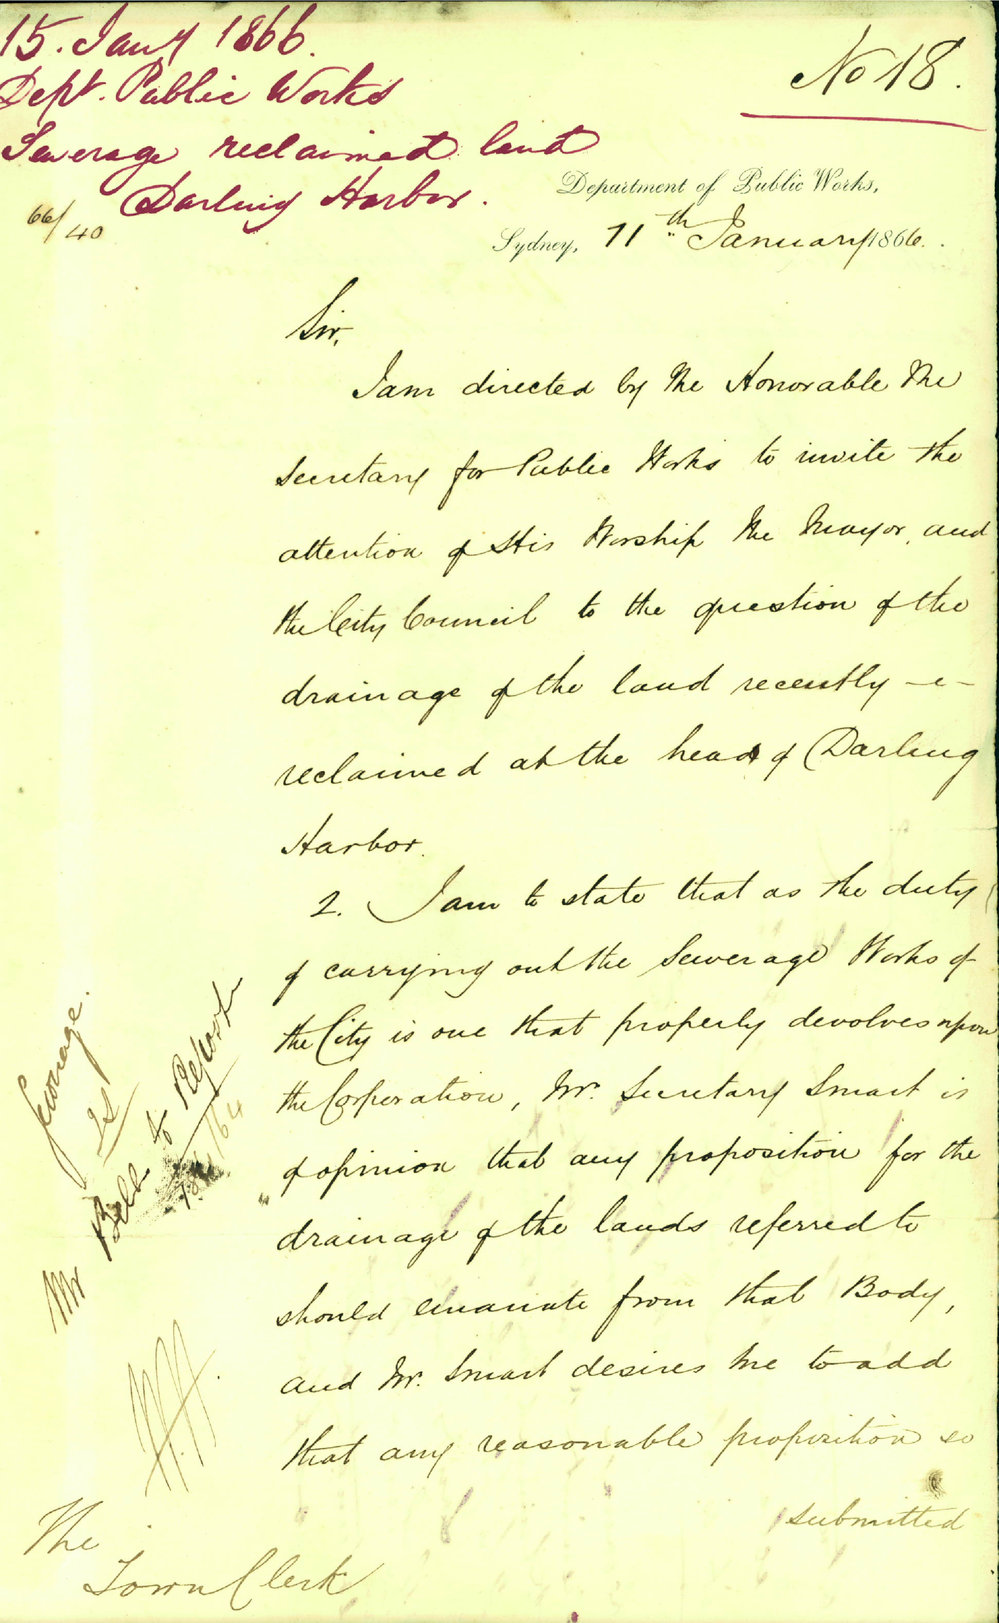 15. Jany 1866.
Dept. Public Works
Sewerage reclaimed land
Darling Harbor.
66/40
No 18.
Department of Public Works,
Sydney, 11th January 1866.
Sir,
I am directed by the Honorable the
Secretary for Public Works to invite the
attention of His Worship the Mayor and
the City Council to the question of the
drainage of the land recently
reclaimed at the head of Darling
Harbor.
2. I am to state that as the duty
of carrying out the Sewerage Works of
the City is one that properly devolves upon
the Corporation, Mr. Secretary Smart is
of opinion that any proposition for the
drainage of the lands referred to
should emanate from that Body,
and Mr. Smart desires me to add
that any reasonable proposition so
submitted
The
Town Clerk
Sewerage.
Mr Bell to Report